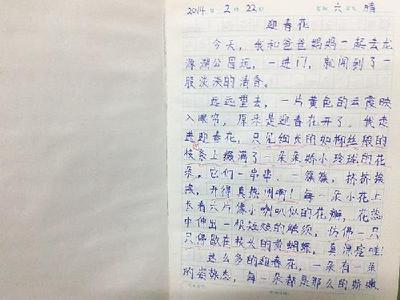 2014 年 2 月 22 日 星期 六 晴
迎春花
今天，我和爸爸妈妈一起去龙
潭湖公园玩，一进门，就闻到了一
股淡淡的清香。
远远望去，一片黄色的云霞映
入眼帘，原来是迎春花开了。我走
进迎春花，只见细长的如柳丝般的
枝条上缀满了一朵朵娇小玲珑的花
朵。它们一串串、一簇簇，挤挤挨
挨，开得真热闹啊！每一朵小花上
长着六片像小喇叭似的花瓣，花蕊
中伸出一根短短的触须，仿佛一只
只停歇在枝头的黄蝴蝶，真漂亮啦！
这么多的迎春花，一朵有一朵
的姿态，每一朵都是那么的娇嫩